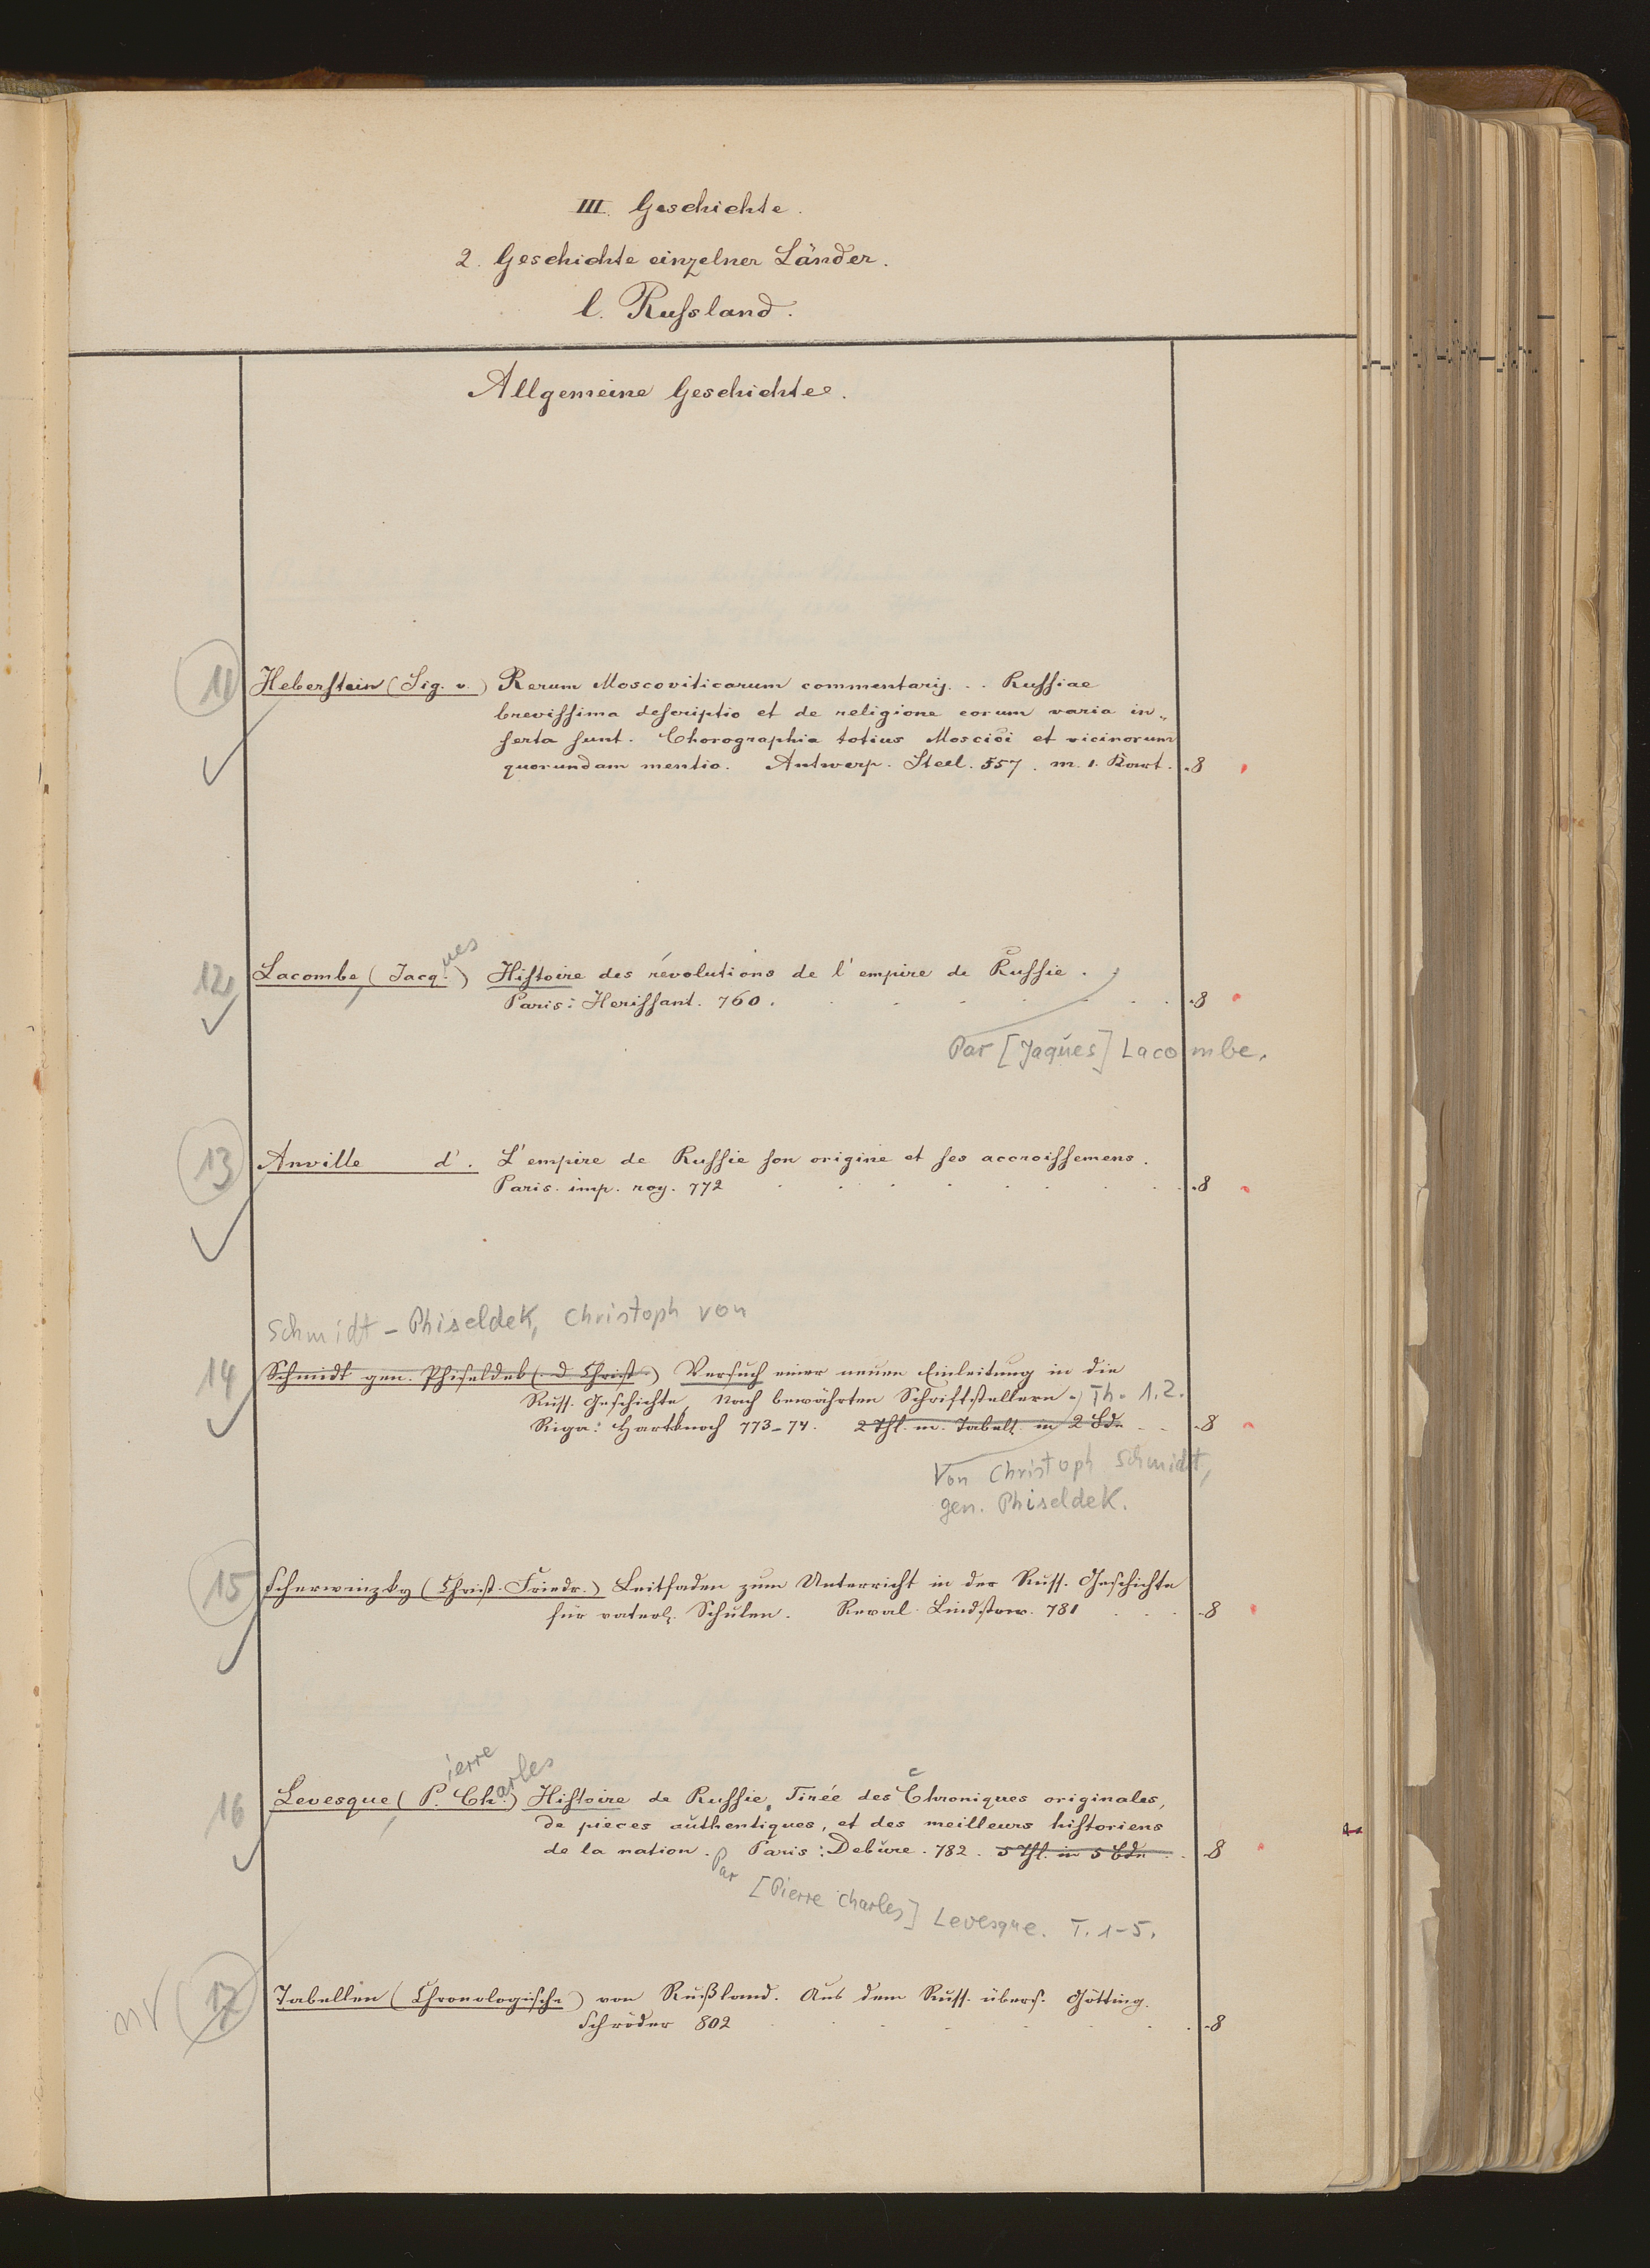 III. Geschichte.
2. Geschichte einzelner Länder.
l. Russland.
Allgemeine Geschichte.
11 Heberstein (Sig. v.) Rerum Moscoviticarum commentarij. . . Russiae
brevissima descriptio et de religione eorum varia in„
serta sunt. Chorographia totius Moscici et vicinorum
quorundam mentio. Antwerp. Steel. 557. m. 1. Kart. 8
12 Lacombe (Jacq.ues) Histoire des révolutions de l'empire de Russie.
Paris: Herissant. 760. 8
Par [Jaques] Lacombe.
13 Anville d'. L'empire de Russie son origine et ses accroissemens.
Paris. imp. roy. 772 8
Schmidt-Phiseldek, Christoph von
14 Schmidt gen. Phiseldek (d. Christ.) Versuch einer neuen Einleitung in die
Russ. Geschichte, Nach bewährten Schriftstellern. Th. 1.2.
Riga: Hartknoch 773-74. 2 Thl. m. Tabell. in 2 Bde. 8
Von Christoph Schmidt,
gen. Phiseldek.
15 Scherwinzky (Christ. Friedr.) Leitfaden zum Unterricht in der Russ. Geschichte
für vaterl. Schulen. Reval. Lindfors. 781 8
ierre arles
16 Levesque (P. Ch.) Histoire de Russie, Tirée des Chroniques originales,
de pieces authentiques, et des meilleurs historiens
de la nation. Paris: Debure. 782. 5 Thl. in 5 Bdn. 8
Par [Pierre Charles] Levesque. T. 1-5.
17 Tabellen (Chronologische) von Rußland. Aus dem Russ. übers. Götting.
Schröder 802 8